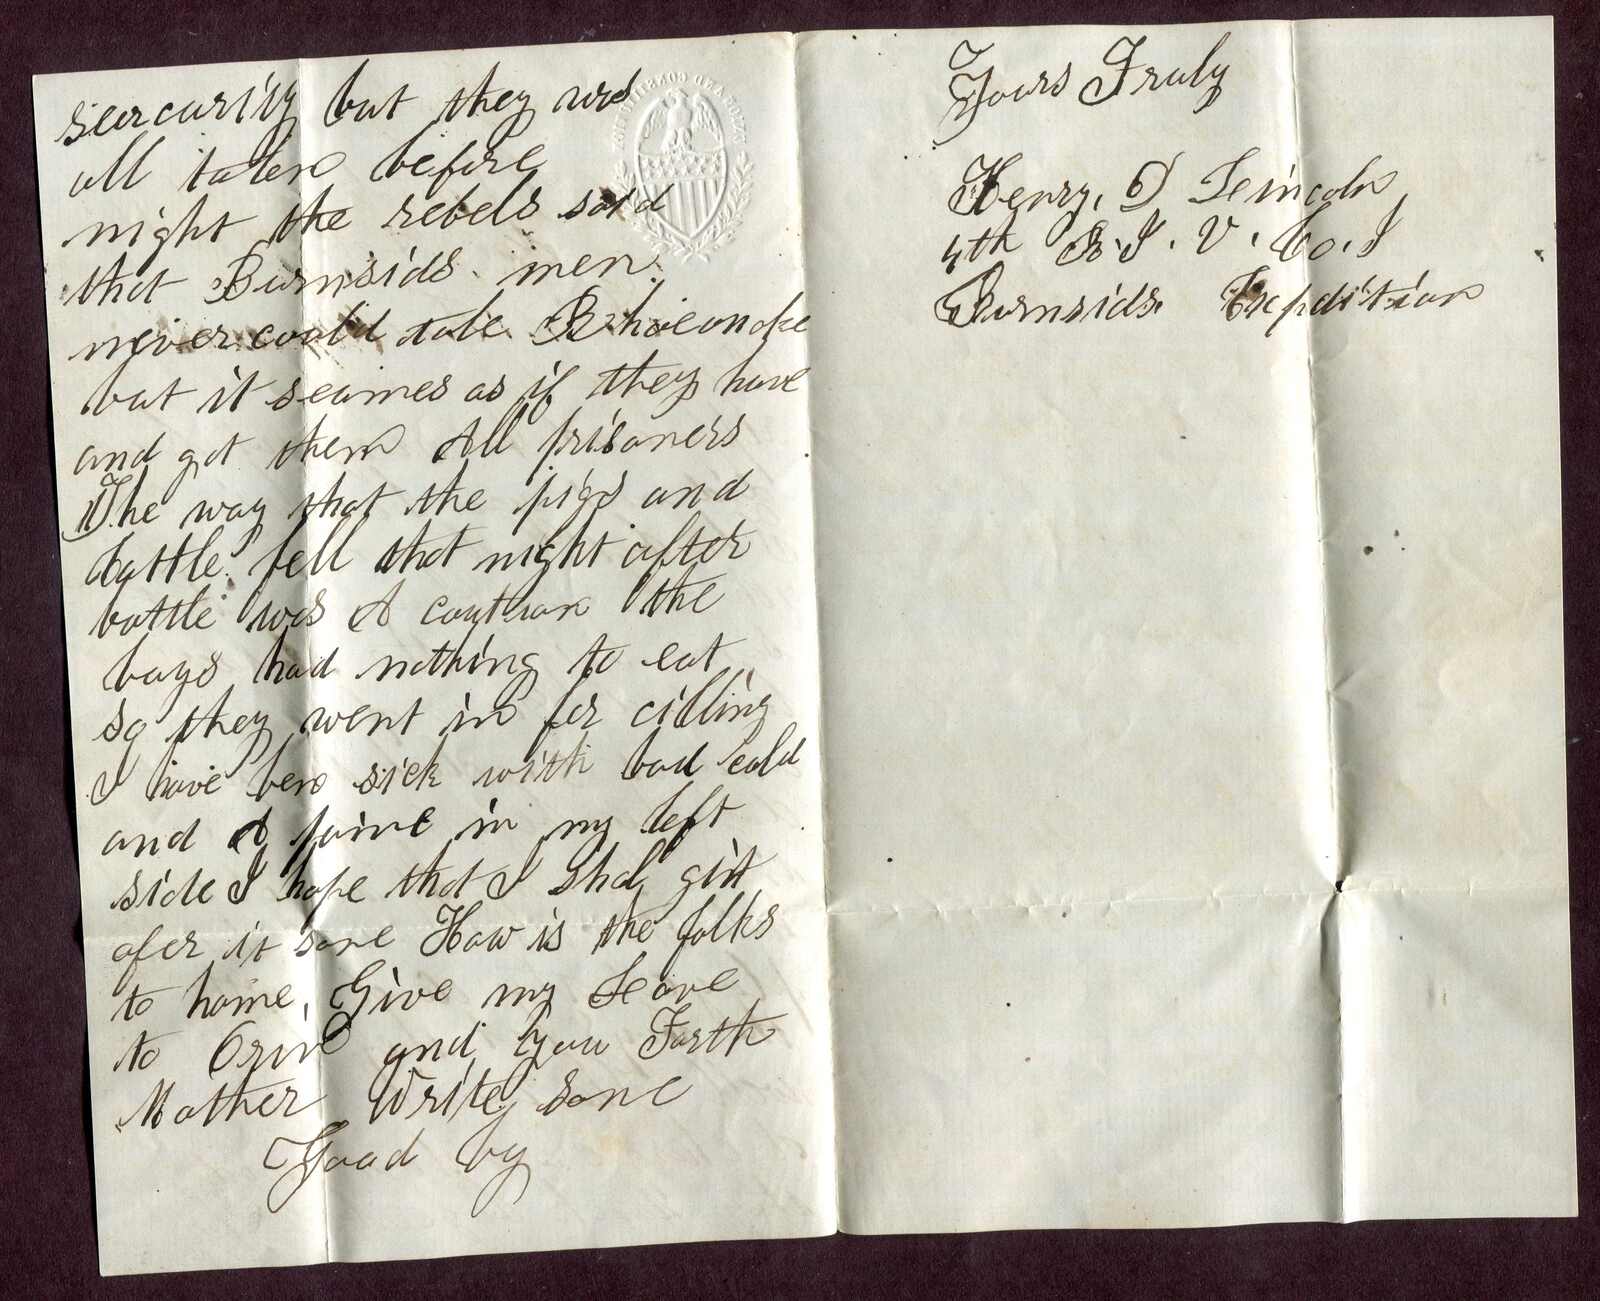 seurcurity but they was
all taken before
night the rebels said
that Burnsids men
never could take Rhoeanoke
but it seames as if they have
and got them All prisoners
The way that the pigs and
cattle fell that night after
battle was A caution the
boys had nothing to eat
so they went in for cilling
I have ben sick with bad cold
and A paine in my left
side I hope that I shal git
ofer it sone How is the folks
to home. Give my Leove
to Orin and you Farth
Mother Write sone
Good by
Yours Truly
Henry. D Leincoln
4th R.I. V. Co. I
Burnsids Expdition